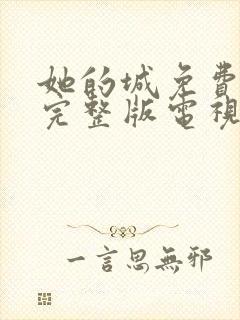 她的城免費
完整版電視
一言思無邪